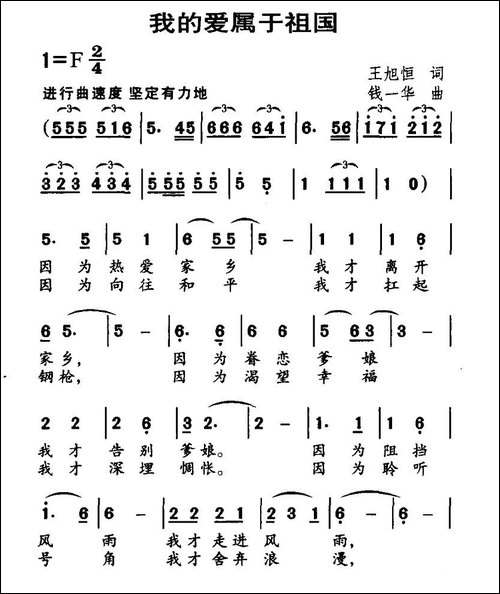 我的爱属于祖国
1=F 2/4
王旭恒 词
进行曲速度 坚定有力地
钱一华 曲
(555 516 | 5. 45 | 666 641 | 6. 56 | 171 212 |
323 434 | 555 555 | 5 5 | 1 111 | 1 0) |
5. 5 | 5 1 | 6 55 | 5 - | 1 1 | 1 6 |
因为热爱家乡 我才离开
因为向往和平 我才扛起
6 5. | 5 - | 6. 6 | 6 6 | 5 63 | 3 - |
家乡, 因为眷恋爹娘
钢枪, 因为渴望幸福
2 2 | 2 6 | 3 2. | 2 - | 1. 1 | 1 6 |
我才告别爹娘。 因为阻挡
我才深埋惆怅。 因为聆听
1. 6 | 6 - | 2 2 2 1 | 2 3 1 | 6 - | 6 - |
风雨 我才走进风雨,
号角 我才舍弃浪漫,